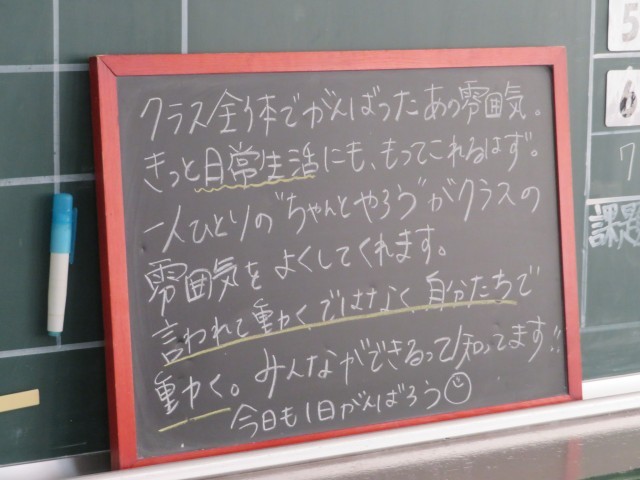 クラス全体でがんばったあの雰囲気。
きっと日常生活にも、もってこれるはず。
一人ひとりの"ちゃんとやろう"がクラスの
雰囲気をよくしてくれます。
言われて動かくではなく自分たちで
動かく。みんなができるって知ってます!!
今日も1日がんばろう
5
6
7
課題